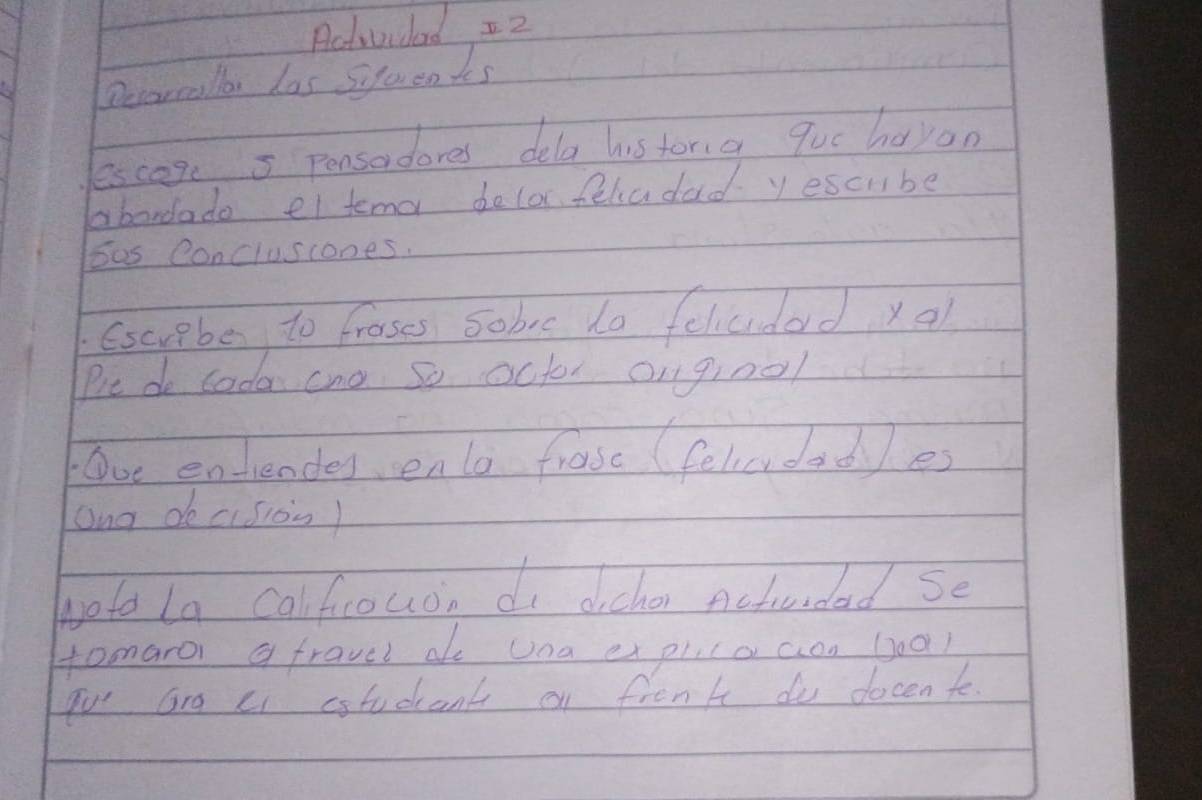 Actividad #2
Desarrollar las Siguientes
escoge 5 Pensadores dela historia que hayan
abordado el tema dela felicidad y escribe
sus Conclusiones.
. Escribe 10 frases sobre la felicidad y al
Pie de cada una su actor original
. Que entiendes en la frase (felicidad) es
una decisión)
Nota La Calificación de dicha Actividad Se
tomara a travez de una explicacion
que ara el estudiante al frente du docente.